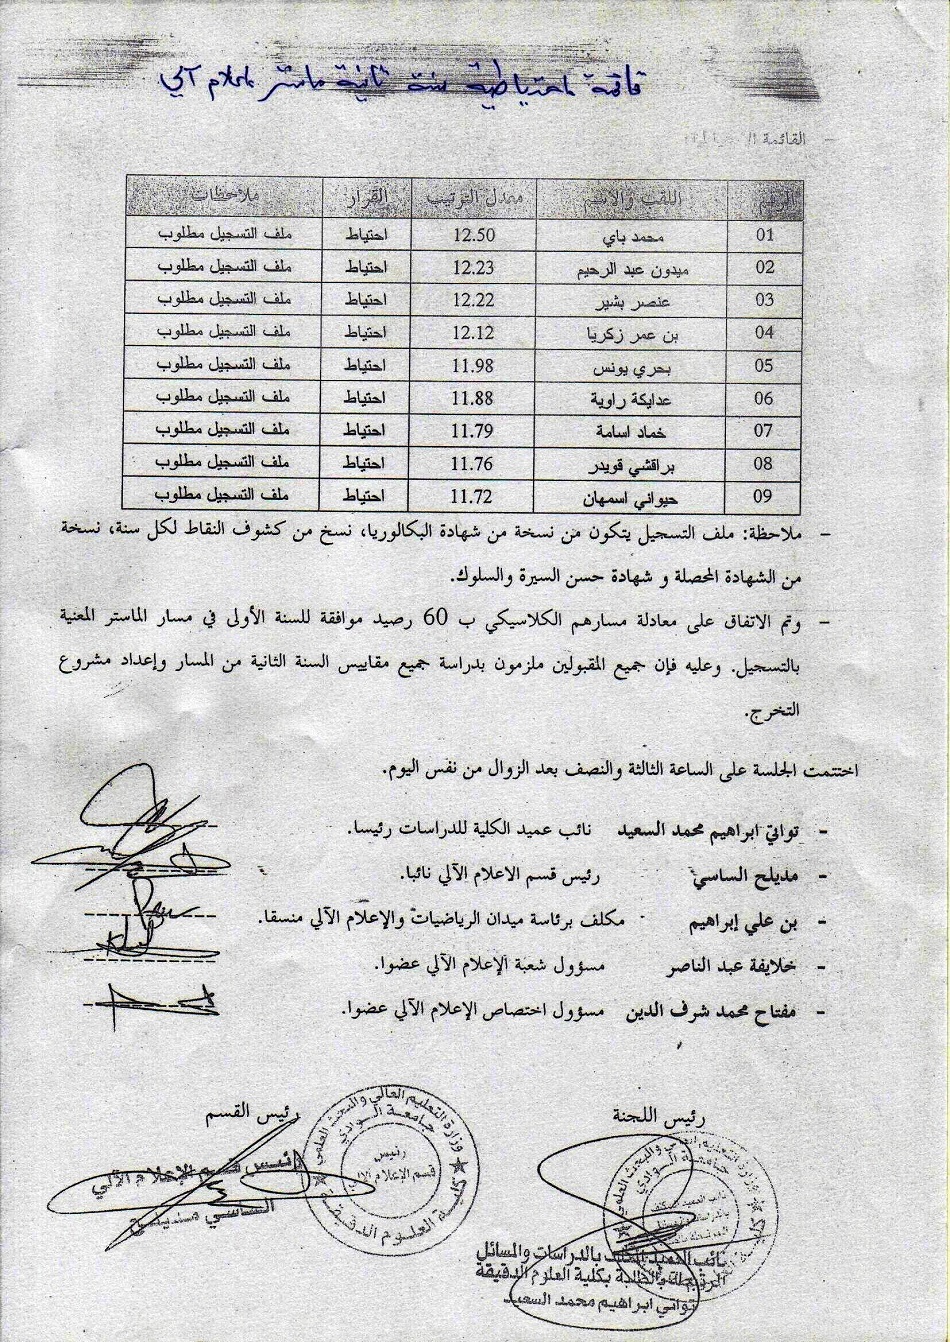 قائمة احتياطية سنة ثانية ماستر إعلام آلي
- القائمة
الرقم اللقب والاسم معدل الترتيب القرار ملاحظات
01 محمد باي 12.50 احتياط ملف التسجيل مطلوب
02 ميدون عبد الرحيم 12.23 احتياط ملف التسجيل مطلوب
03 عنصر بشير 12.22 احتياط ملف التسجيل مطلوب
04 بن عمر زكريا 12.12 احتياط ملف التسجيل مطلوب
05 بحري يونس 11.98 احتياط ملف التسجيل مطلوب
06 عدايكة راوية 11.88 احتياط ملف التسجيل مطلوب
07 خماد اسامة 11.79 احتياط ملف التسجيل مطلوب
08 براقشي قويدر 11.76 احتياط ملف التسجيل مطلوب
09 حيواني اسمهان 11.72 احتياط ملف التسجيل مطلوب
- ملاحظة: ملف التسجيل يتكون من نسخة من شهادة البكالوريا، نسخ من كشوف النقاط لكل سنة، نسخة
من الشهادة المحصلة و شهادة حسن السيرة والسلوك.
- وتم الاتفاق على معادلة مسارهم الكلاسيكي ب 60 رصيد موافقة للسنة الأولى في مسار الماستر المعنية
بالتسجيل. وعليه فإن جميع المقبولين ملزمون بدراسة جميع مقاييس السنة الثانية من المسار وإعداد مشروع
التخرج.
اختتمت الجلسة على الساعة الثالثة والنصف بعد الزوال من نفس اليوم.
- تواتي ابراهيم محمد السعيد نائب عميد الكلية للدراسات رئيسا.
- مديلح الساسي رئيس قسم الاعلام الآلي نائبا.
- بن علي إبراهيم مكلف برئاسة ميدان الرياضيات والإعلام الآلي منسقا.
- خلايفة عبد الناصر مسؤول شعبة الإعلام الآلي عضوا.
- مفتاح محمد شرف الدين مسؤول اختصاص الإعلام الآلي عضوا.
رئيس اللجنة
رئيس القسم
وزارة التعليم العالي والبحث العلمي
جامعة الوادي
رئيس
قسم الإعلام الآلي
كلية العلوم الدقيقة
رئيس قسم الإعلام الآلي
الساسي مديلح
وزارة التعليم العالي والبحث العلمي
جامعة الوادي
نائب العميد المكلف بالدراسات والمسائل
المرتبطة بالطلبة بكلية العلوم الدقيقة
تواتي ابراهيم محمد السعيد